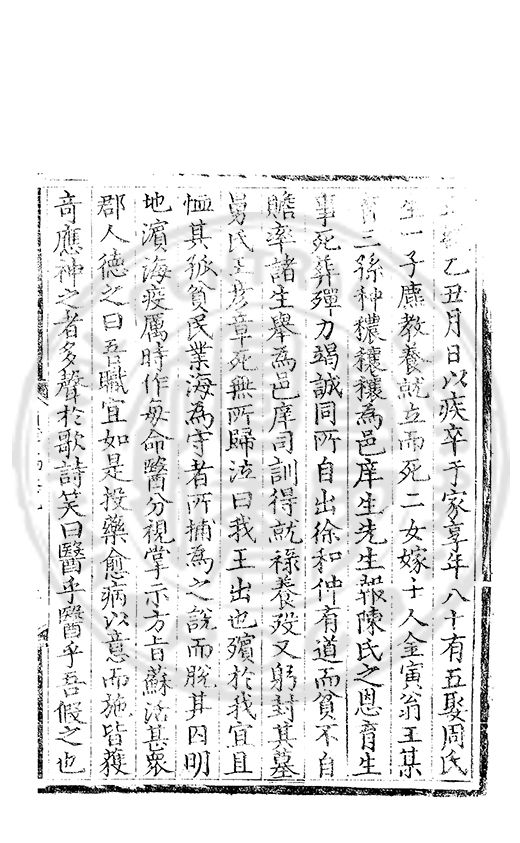 乙丑月日以疾卒于家享年八十有五娶周氏
生一子廌教養就立而死二女嫁士人金寅翁王某
育三孫种穠穰穰為邑庠生先生報陳氏之恩育生
事死葬殫力竭誠同所自出徐和仲有道而貧不自
贍率諸生舉為邑庠司訓得就祿養歿又躬封其墓
舅氏王彥章死無所歸泣曰我王出也殯於我宜且
恤其孤貧民業海為守者所捕為之說而脫其囚明
地濱海疫厲時作每命醫分視掌示方旨蘇活甚衆
郡人德之曰吾職宜如是投藥愈病以意而施皆獲
奇應神之者多聲於歌詩笑曰醫乎醫乎吾假之也